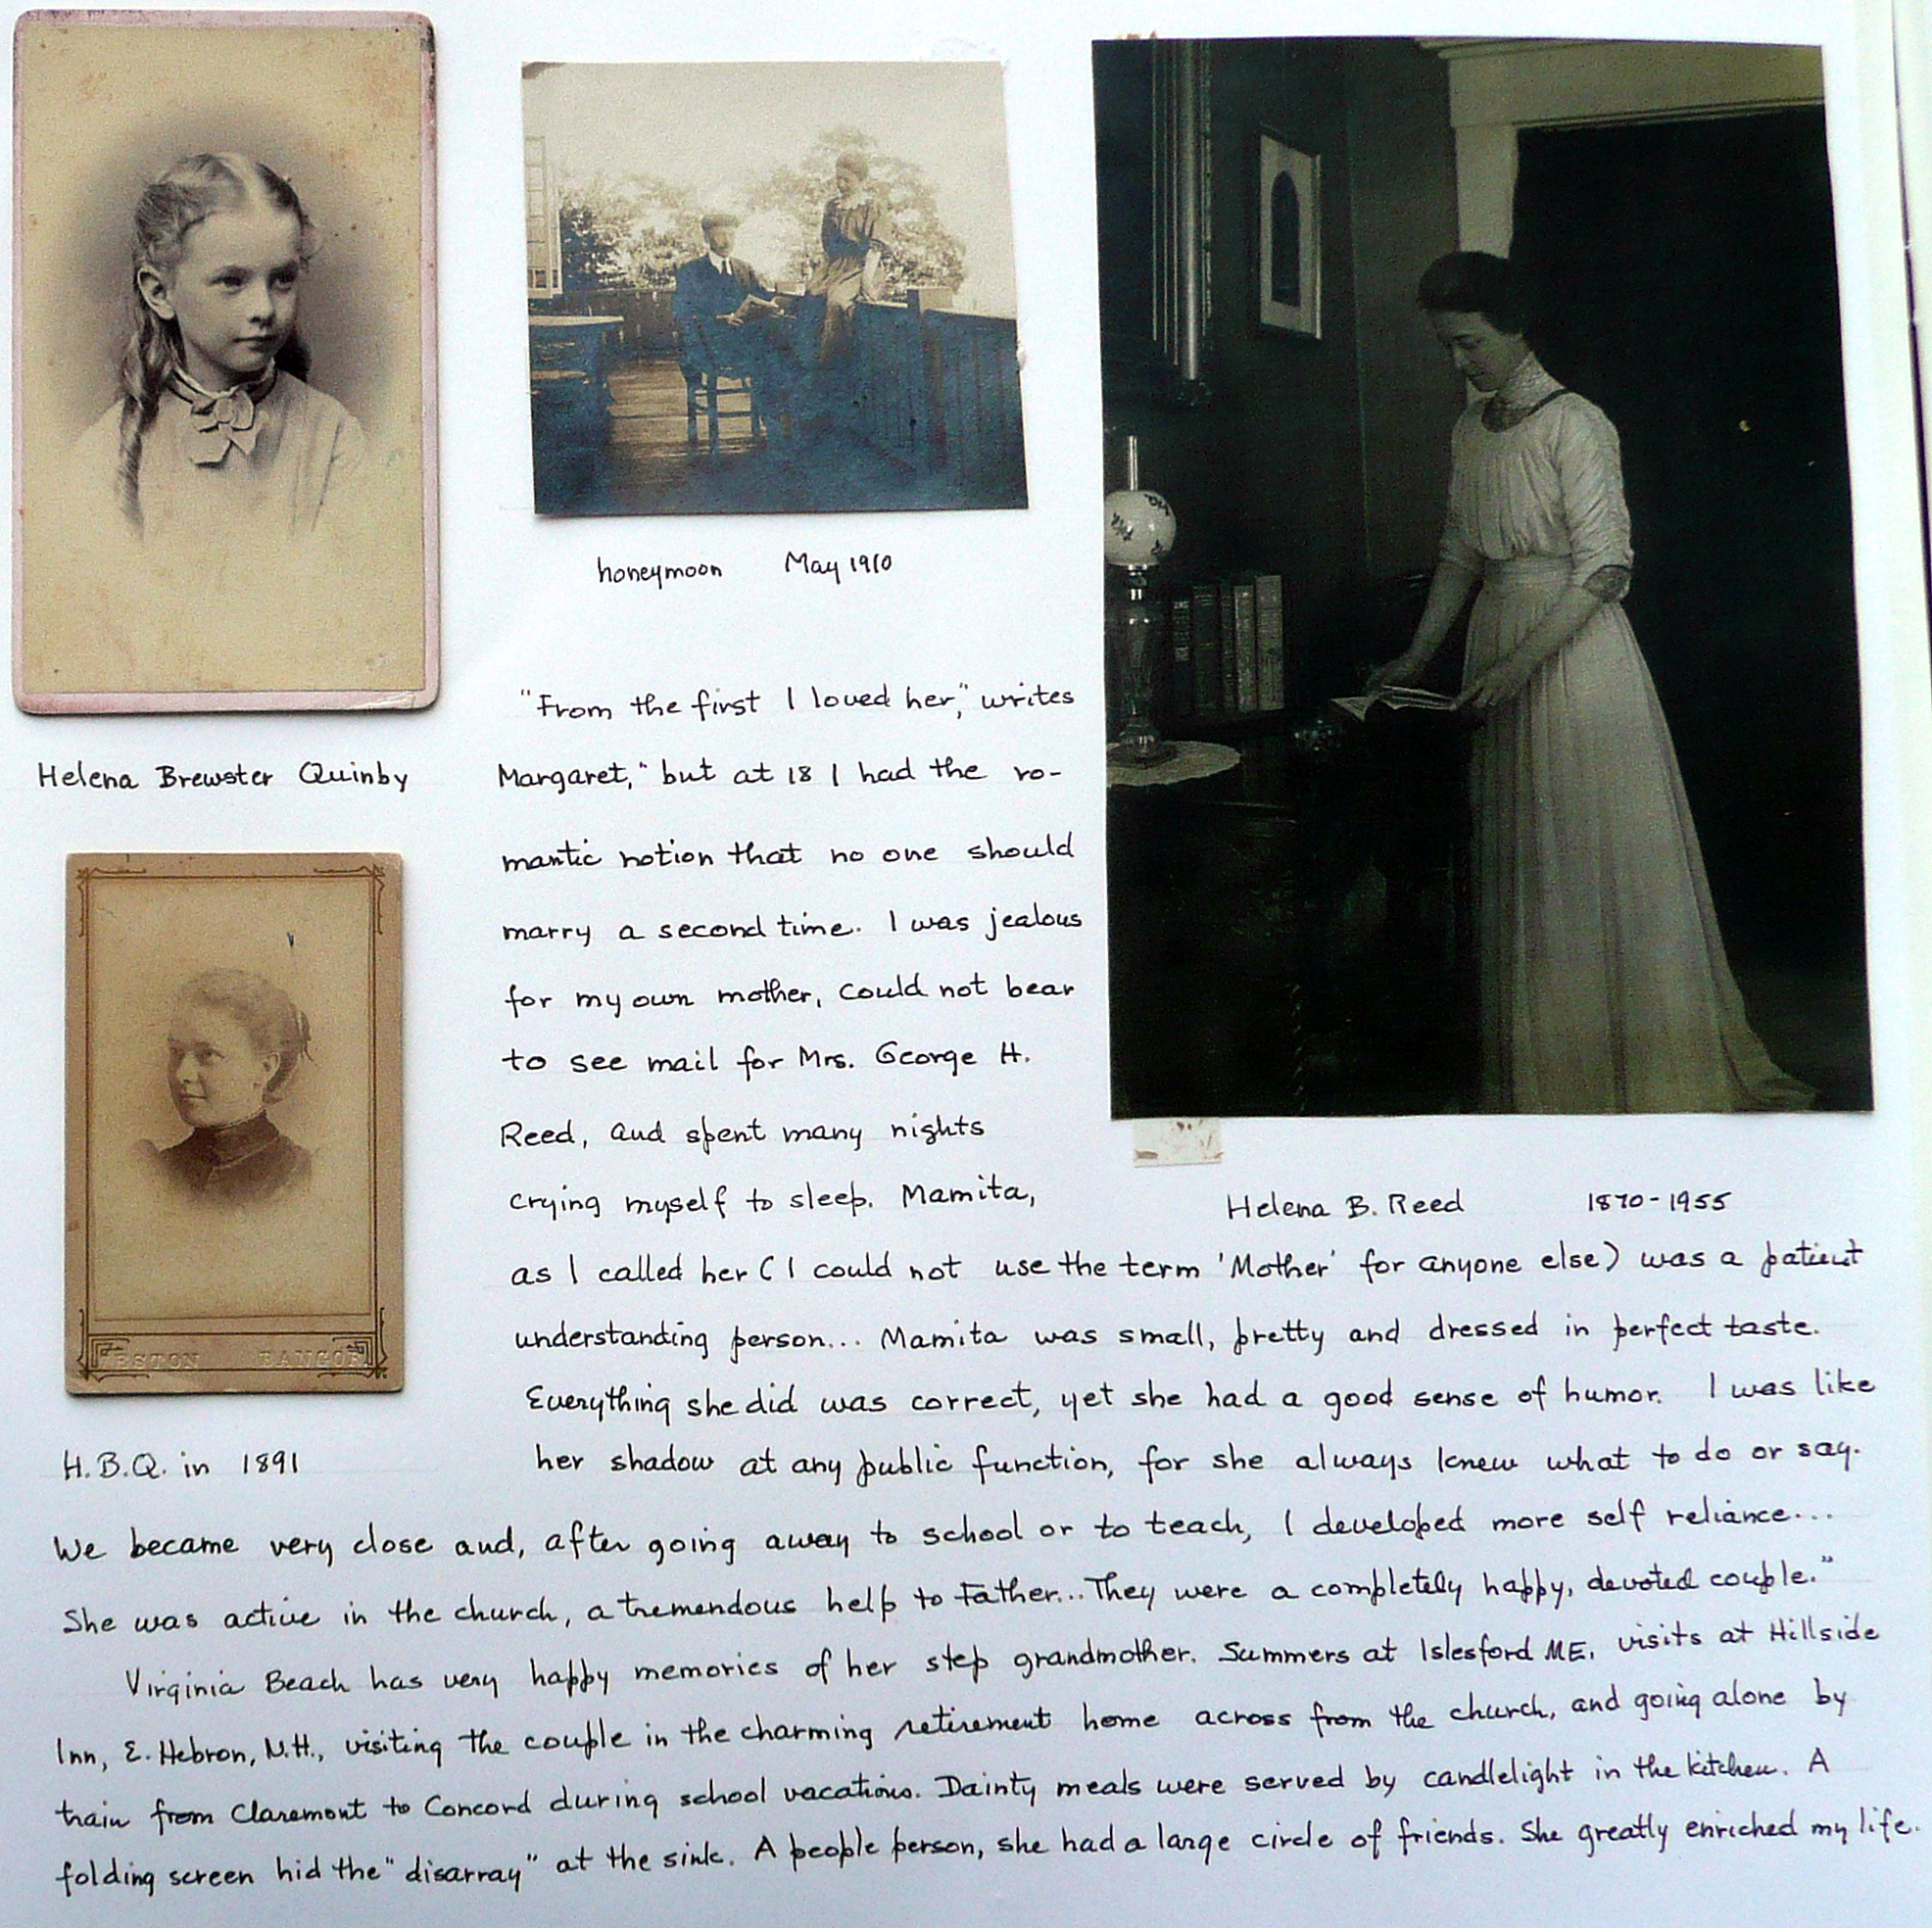 Helena Brewster Quinby
WESTON BANGOR
H.B.Q. in 1891
honeymoon May 1910
Helena B. Reed 1870-1955
"From the first I loved her," writes
Margaret, "but at 18 I had the ro-
mantic notion that no one should
marry a second time. I was jealous
for my own mother, could not bear
to see mail for Mrs. George H.
Reed, and spent many nights
crying myself to sleep. Mamita,
as I called her (I could not use the term 'Mother' for anyone else) was a patient
understanding person... Mamita was small, pretty and dressed in perfect taste.
Everything she did was correct, yet she had a good sense of humor. I was like
her shadow at any public function, for she always knew what to do or say.
We became very close and, after going away to school or to teach, I developed more self reliance...
She was active in the church, a tremendous help to Father... They were a completely happy, devoted couple."
Virginia Beach has very happy memories of her step grandmother. Summers at Islesford ME, visits at Hillside
Inn, E. Hebron, N.H., visiting the couple in the charming retirement home across from the church, and going alone by
train from Claremont to Concord during school vacations. Dainty meals were served by candlelight in the kitchen. A
folding screen hid the "disarray" at the sink. A people person, she had a large circle of friends. She greatly enriched my life.